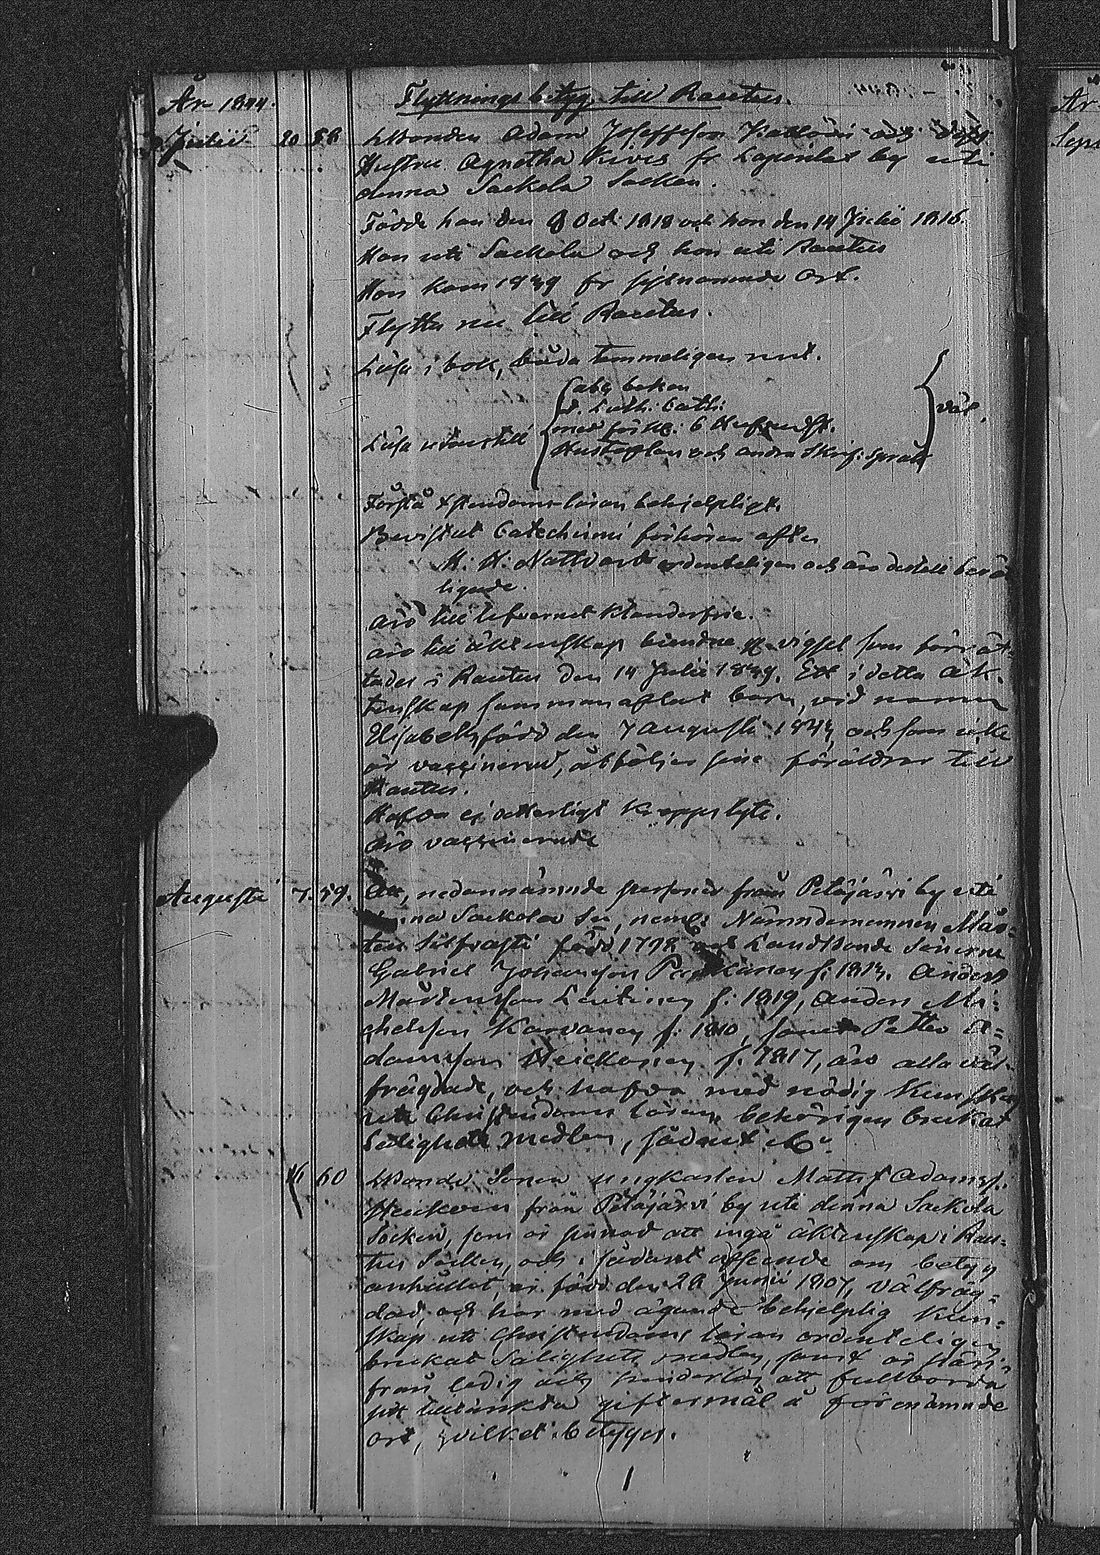 År 1844. Flyttnings betyg till Rautus.
Julii 20 58 Bonden Adam Josefsson och dess
Hustru Agnetha Kives fr Lapinlax by uti
denna Sackola Socken.
Födde han den 8 Oct: 1818 och hon den 14 Julii 1816.
Han uti Sackola och hon uti Rautus
Hon kom 1839 fr sistnämnde Ort.
Flytta nu till Rautus.
Läsa i bok, båda temmeligen rent.
abc boken
d. Luth: Cath:
Läsa utantill med förkl:
Hustaflan och andra Skrif: språk
väl.
Förstå Xstendoms läran behjelpligt.
Bevistat Catechismi förhören ofta
H. H. Nattvard ordenteligen och äro dertill berät
tigade.
äro till lefvernet klanderfrie.
äro till äktenskap bundne vigsel som förrät-
tades i Rautus den 14 Julii 1839. Ett i detta äk-
tenskap sammanaflat barn, vid namn
Elisabeth, född den 7 Augusti 1844, och som icke
är vaccinerad, åtföljer sine föräldrar till
Rautus.
Hafva ej vetterligt kroppslyte.
äro vaccinerade
Augusti 7. 59. Att, nedannämnde personer från Petäjärvi by uti
denna Sackola Sn, neml: Nämndemannen Mår-
ten född 1798 och Landbonde Sönerne
Gabriel Johansson f: 1813. Anders
Mårtensson f: 1819, Anders Mi-
chelsson Karvanen f. 1810 samt Petter A-
damsson Heickonen f. 1817, äro alla väl-
frägdade, och hafva med nödig kunskap
uti Christendoms läran, behörigen brukat
Salighets medlen, sådant &c.
16 60 Bonde Sonen ungkarlen Matts Adamss:
från Petäjärvi by uti denna Sackola
Socken, som är sinnad att ingå äktenskap i Rau-
tus Socken, och i sådant afseende om betyg
anhållit, är född den 28 Junii 1807, välfräg-
dad, och har med ägande behjelplig kun-
skap uti Christendoms läran ordenteligen
brukat Salighets medlen, samt är härif-
från ledig och hinderlös att fullborda
sitt tilltänkta giftermål å förenämnde
ort, hvilket betygas.